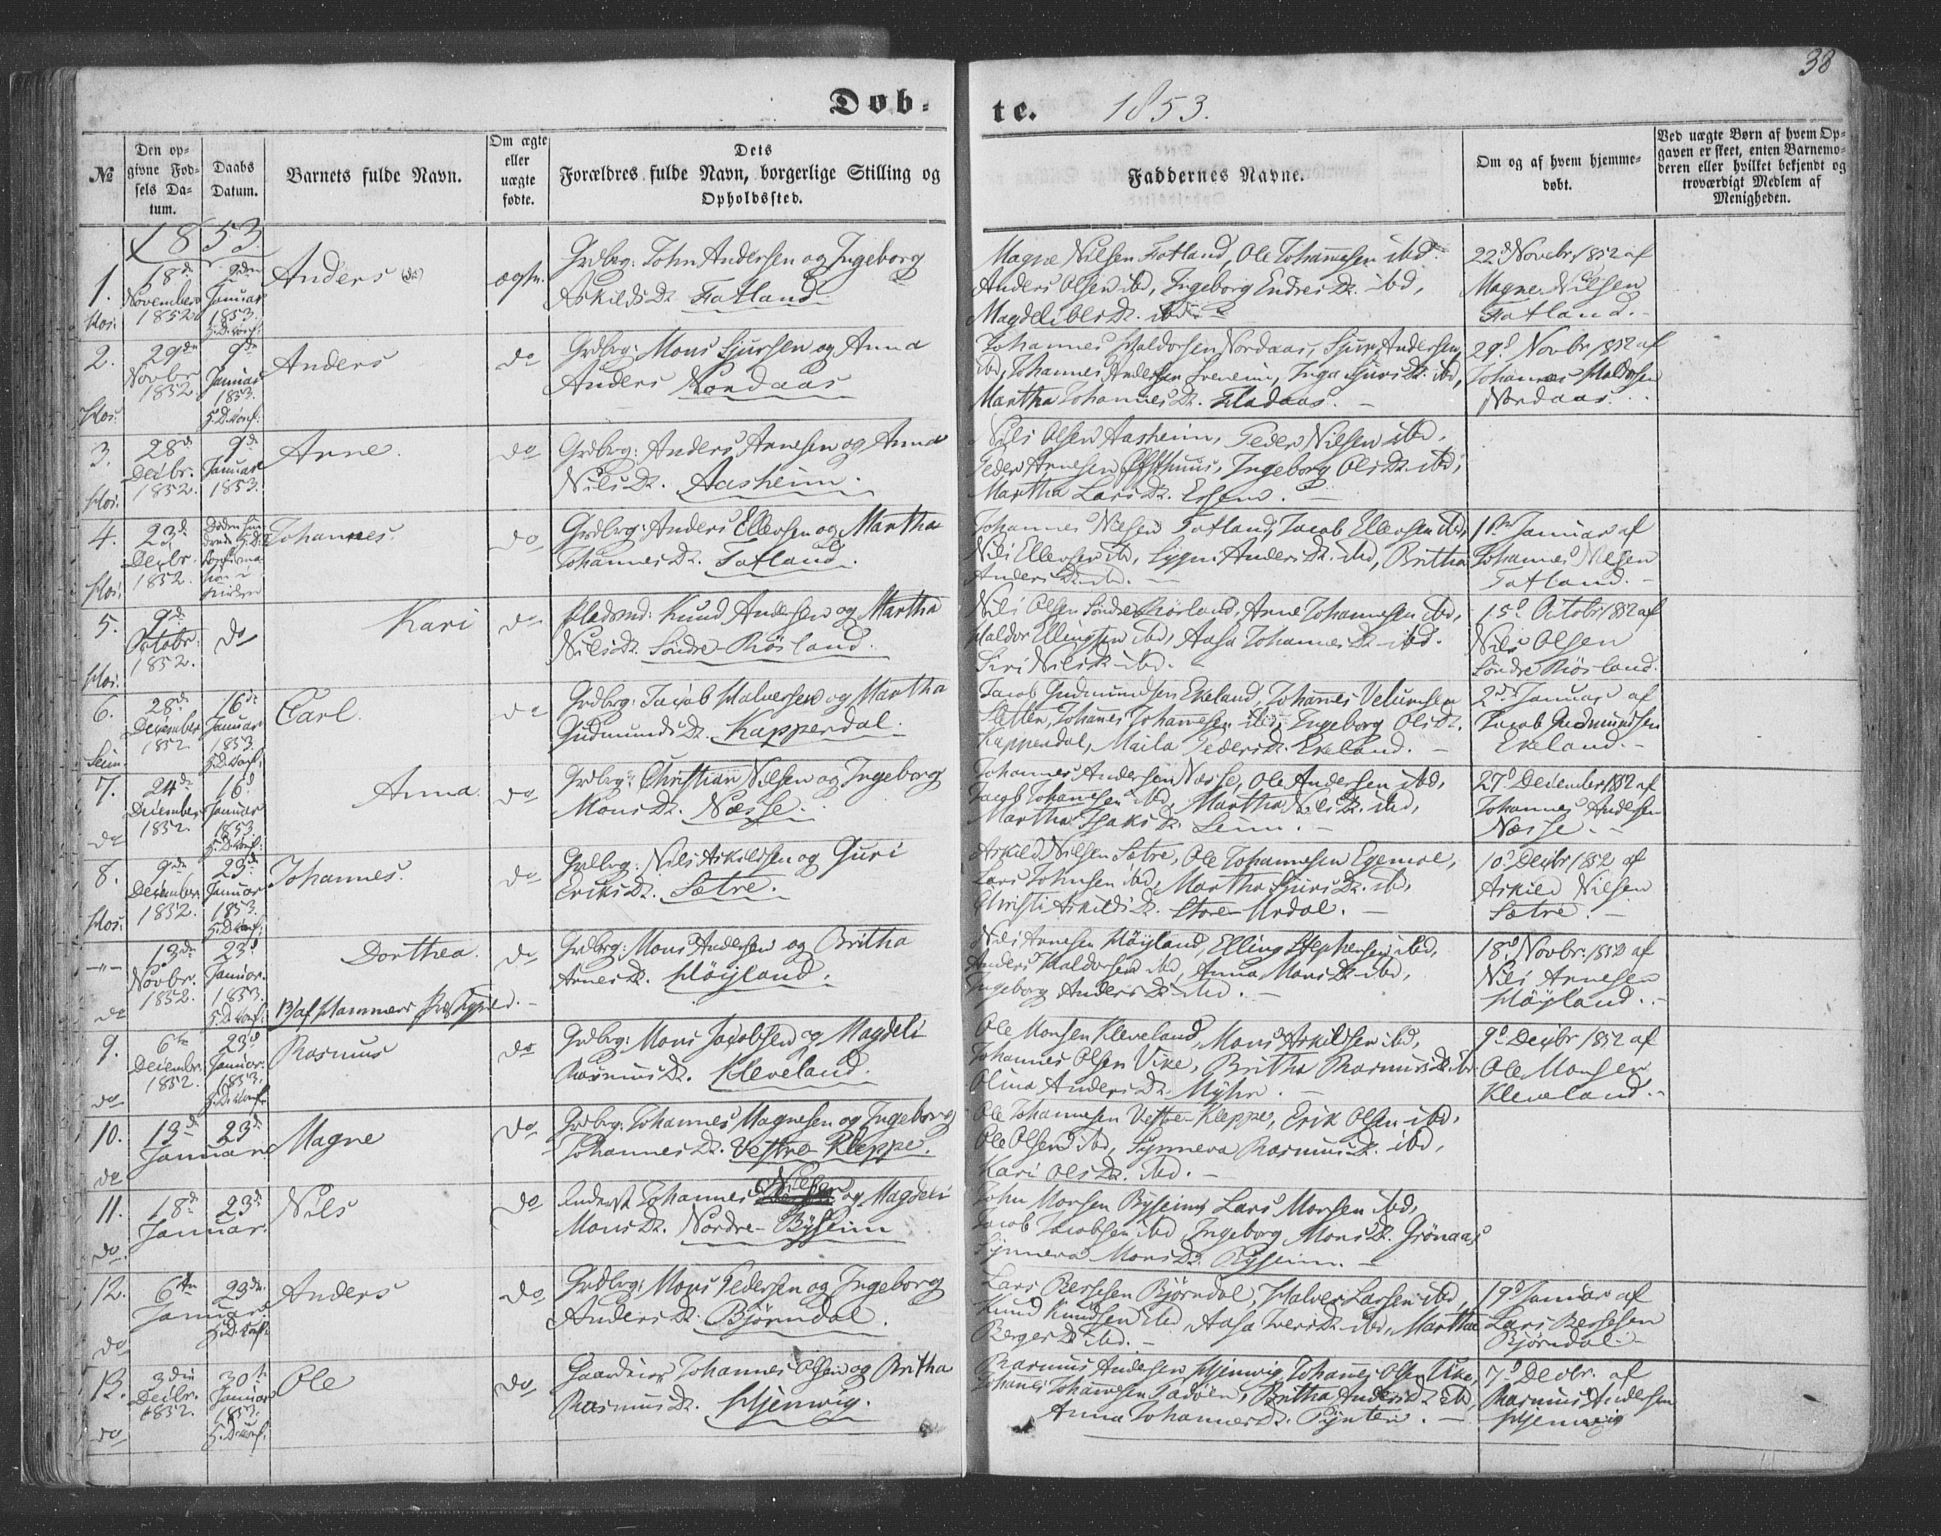 38
Døb-
te. 1853.
№
Den op-
givne Fød-
sels Da-
tum.
Daabs
Datum.
Barnets fulde Navn.
Om ægte
eller
uægte
fødte.
Dets
Forældres fulde Navn, borgerlige Stilling og
Opholdssted.
Faddernes Navne.
Om og af hvem hjemme-
døbt.
Ved uægte Børn af hvem Op-
gaven er skeet, enten Barnemo-
deren eller hvilket bekjendt og
troværdigt Medlem af
Menigheden.
1853.
1.
Hos:
18d
November
1852
9den
Januar
1853.
Anders
ægte.
Grdbrg: John Andersen og Ingeborg
Askilds Dr. Fotland.
Magne Nilsen Fotland, Ole Johannesen ibd.
Anders Olsen ibd, Ingeborg Endres Dr. ibd,
Magdeli Dr. ibd.
22d Novebr 1852 af
Magne Nilsen
Fotland.
2.
Hos:
29de
Novbr
1852
9de
Januar
1853.
Anders
do
Grdbrg: Mons Sjursen og Anna
Anders Nordaas
Johannes Haldorsen Nordaas, Sjur Andersen
ibd, Johannes Andersen, Inga Sjurs Dr. ibd,
Martha Johannes Dr. Hadaas.
29d Novbr 1852 af
Johannes Haldorsen
Nordaas.
3.
Hos:
28d
Decbr.
1852.
9d
Januar
1853.
Arne.
do
Grdbrg: Anders Arnesen og Anna
Nils Dr. Aasheim.
Nils Olsen Aasheim, Peder Nilsen ibd,
Peder Arnesen, Ingeborg Ols Dr. ibd,
Martha Lars Dr.
4.
Hos:
23d
Decbr.
1852
Johannes.
do
Grdbrg: Anders Ellevsen og Martha
Johannes Dr. Fotland.
Johannes Nilsen Fotland, Jacob Ellevsen ibd,
Nils Ellevsen ibd, Anders Dr. ibd, Britha
Anders Dr. ibd.
1ste Januar af
Johannes Nilsen
Fotland.
5.
Hos:
9d
October:
1852.
do
Kari
do
Pladsmd: Knud Andersen og Martha
Nils Dr. Søndre Røsland.
Nils Olsen Søndre Røsland, Arne Johannesen ibd,
Haldor Ellingsen ibd, Aasa Johannes Dr. ibd.
Siri Nils Dr. ibd.
15d Octobr 1852 af
Nils Olsen
Søndre Røsland.
6.
Seim:
28d
December
1852
16de
Januar
1853.
Carl.
do
Grdbrg: Jacob Halversen og Martha
Gudmunds Dr. Kapperdal.
Jacob Gudmundsen Eveland, Johannes
Sletten, Johannes Johannesen ibd, Ingeborg Ols Dr.
Kapperdal, Marta Peders Dr. Eveland.
2den Januar af
Jacob Gudmundsen
Eveland.
7.
do
24de
December
1852.
16d
Januar
1853
Anna.
do
Grdbrg: Christian Nilsen og Ingeborg
Mons Dr. Næsse.
Johannes Andersen Næsse, Ole Andersen ibd,
Jacob Johannesen ibd, Martha Nils Dr. ibd,
Martha Isaks Dr. Seim.
27d December 1852 af
Johannes Andersen
Næsse.
8.
Hos:
9de
December
1852.
23de
Januar
1853.
Johannes.
do
Grdbrg: Nils Askildsen og Guri
Eriks Dr. Sætre.
Askild Nilsen Sætre, Ole Johannesen
Lars Johnsen ibd, Martha Sjurs Dr. ibd,
Christi Askilds Dr. Store Urdal.
10d Decbr 1852 af
Askild Nilsen
Sætre.
-"-
do
13de
Novbr.
1852.
23d
Januar.
1853.
Dorthea.
do
Grdbrg: Mons Andersen og Britha
Arnes Dr. Høyland.
Nils Arnesen Høyland, Elling Stephensen ibd,
Anders Haldorsen ibd, Anna Mons Dr. ibd,
Ingeborg Anders Dr. ibd.
18d Novbr. 1852 af
Nils Arnesen
Høyland.
9.
do
6te
Decembr.
1852.
23d
Januar.
1853.
Rasmus
do
Grdbrg: Mons Jacobsen og Magdeli
Rasmus Dr. Kleveland.
Ole Monsen Kleveland, Mons Askildsen ibd,
Johannes Olsen Vike, Britha Rasmus Dr. ibd
Olina Anders Dr. Myhr.
9d Decbr 1852 af
Ole Monsen
Kleveland.
10.
do
13de
Januar
23de
Magne
do
Grdbrg: Johannes Magnesen og Ingeborg
Johannes Dr. Vestre Kleppe.
Ole Johannesen Vestre Kleppe, Erik Olsen ibd,
Ole Olsen ibd, Synneva Rasmus Dr. ibd,
Kari Ols Dr. ibd.
11.
do.
18de
Januar.
23de
Nils
do
Inderst Johannes Nilsen og Magdeli
Mons Dr. Nordre Byseim
John Monsen Byseim, Lars Monsen ibd,
Jacob Jacobsen ibd, Ingeborg Mons Dr. Grönaas
Synneva Mons Dr. Byseim.
12.
do
6te
Januar
23de
Anders
do
Grdbrg: Mons Pedersen og Ingeborg
Anders Dr. Bjørndal.
Lars Bessesen Bjørndal, Halver Larsen ibd,
Knud Knudsen ibd, Aasa Ivers Dr. ibd, Martha
Berges Dr. ibd.
19d Januar af
Lars Bessesen
Bjørndal
13.
do
3die
Decbr.
1852.
30te
Januar
1853.
Ole
do
Gaardmd Johannes Olsen og Britha
Rasmus Dr. Hjemvig.
Rasmus Andersen Hjemvig, Johannes Olsen Vike,
Johannes Johannesen, Britha Anders Dr. ibd,
Anna Johannes Dr.
7d Decbr. af
Rasmus Andersen
Hjemvig